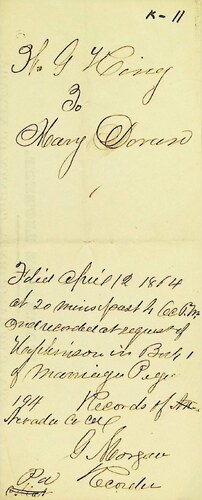 K - 11
G King
To
Mary Doran
Filed April 12 1864
at 20 mins past 4 Oc P.m
and recorded at request of
in Book 1
of Marriages Page
194 Records of
Nevada Co Cal
G Morgan
Recorder
Pd